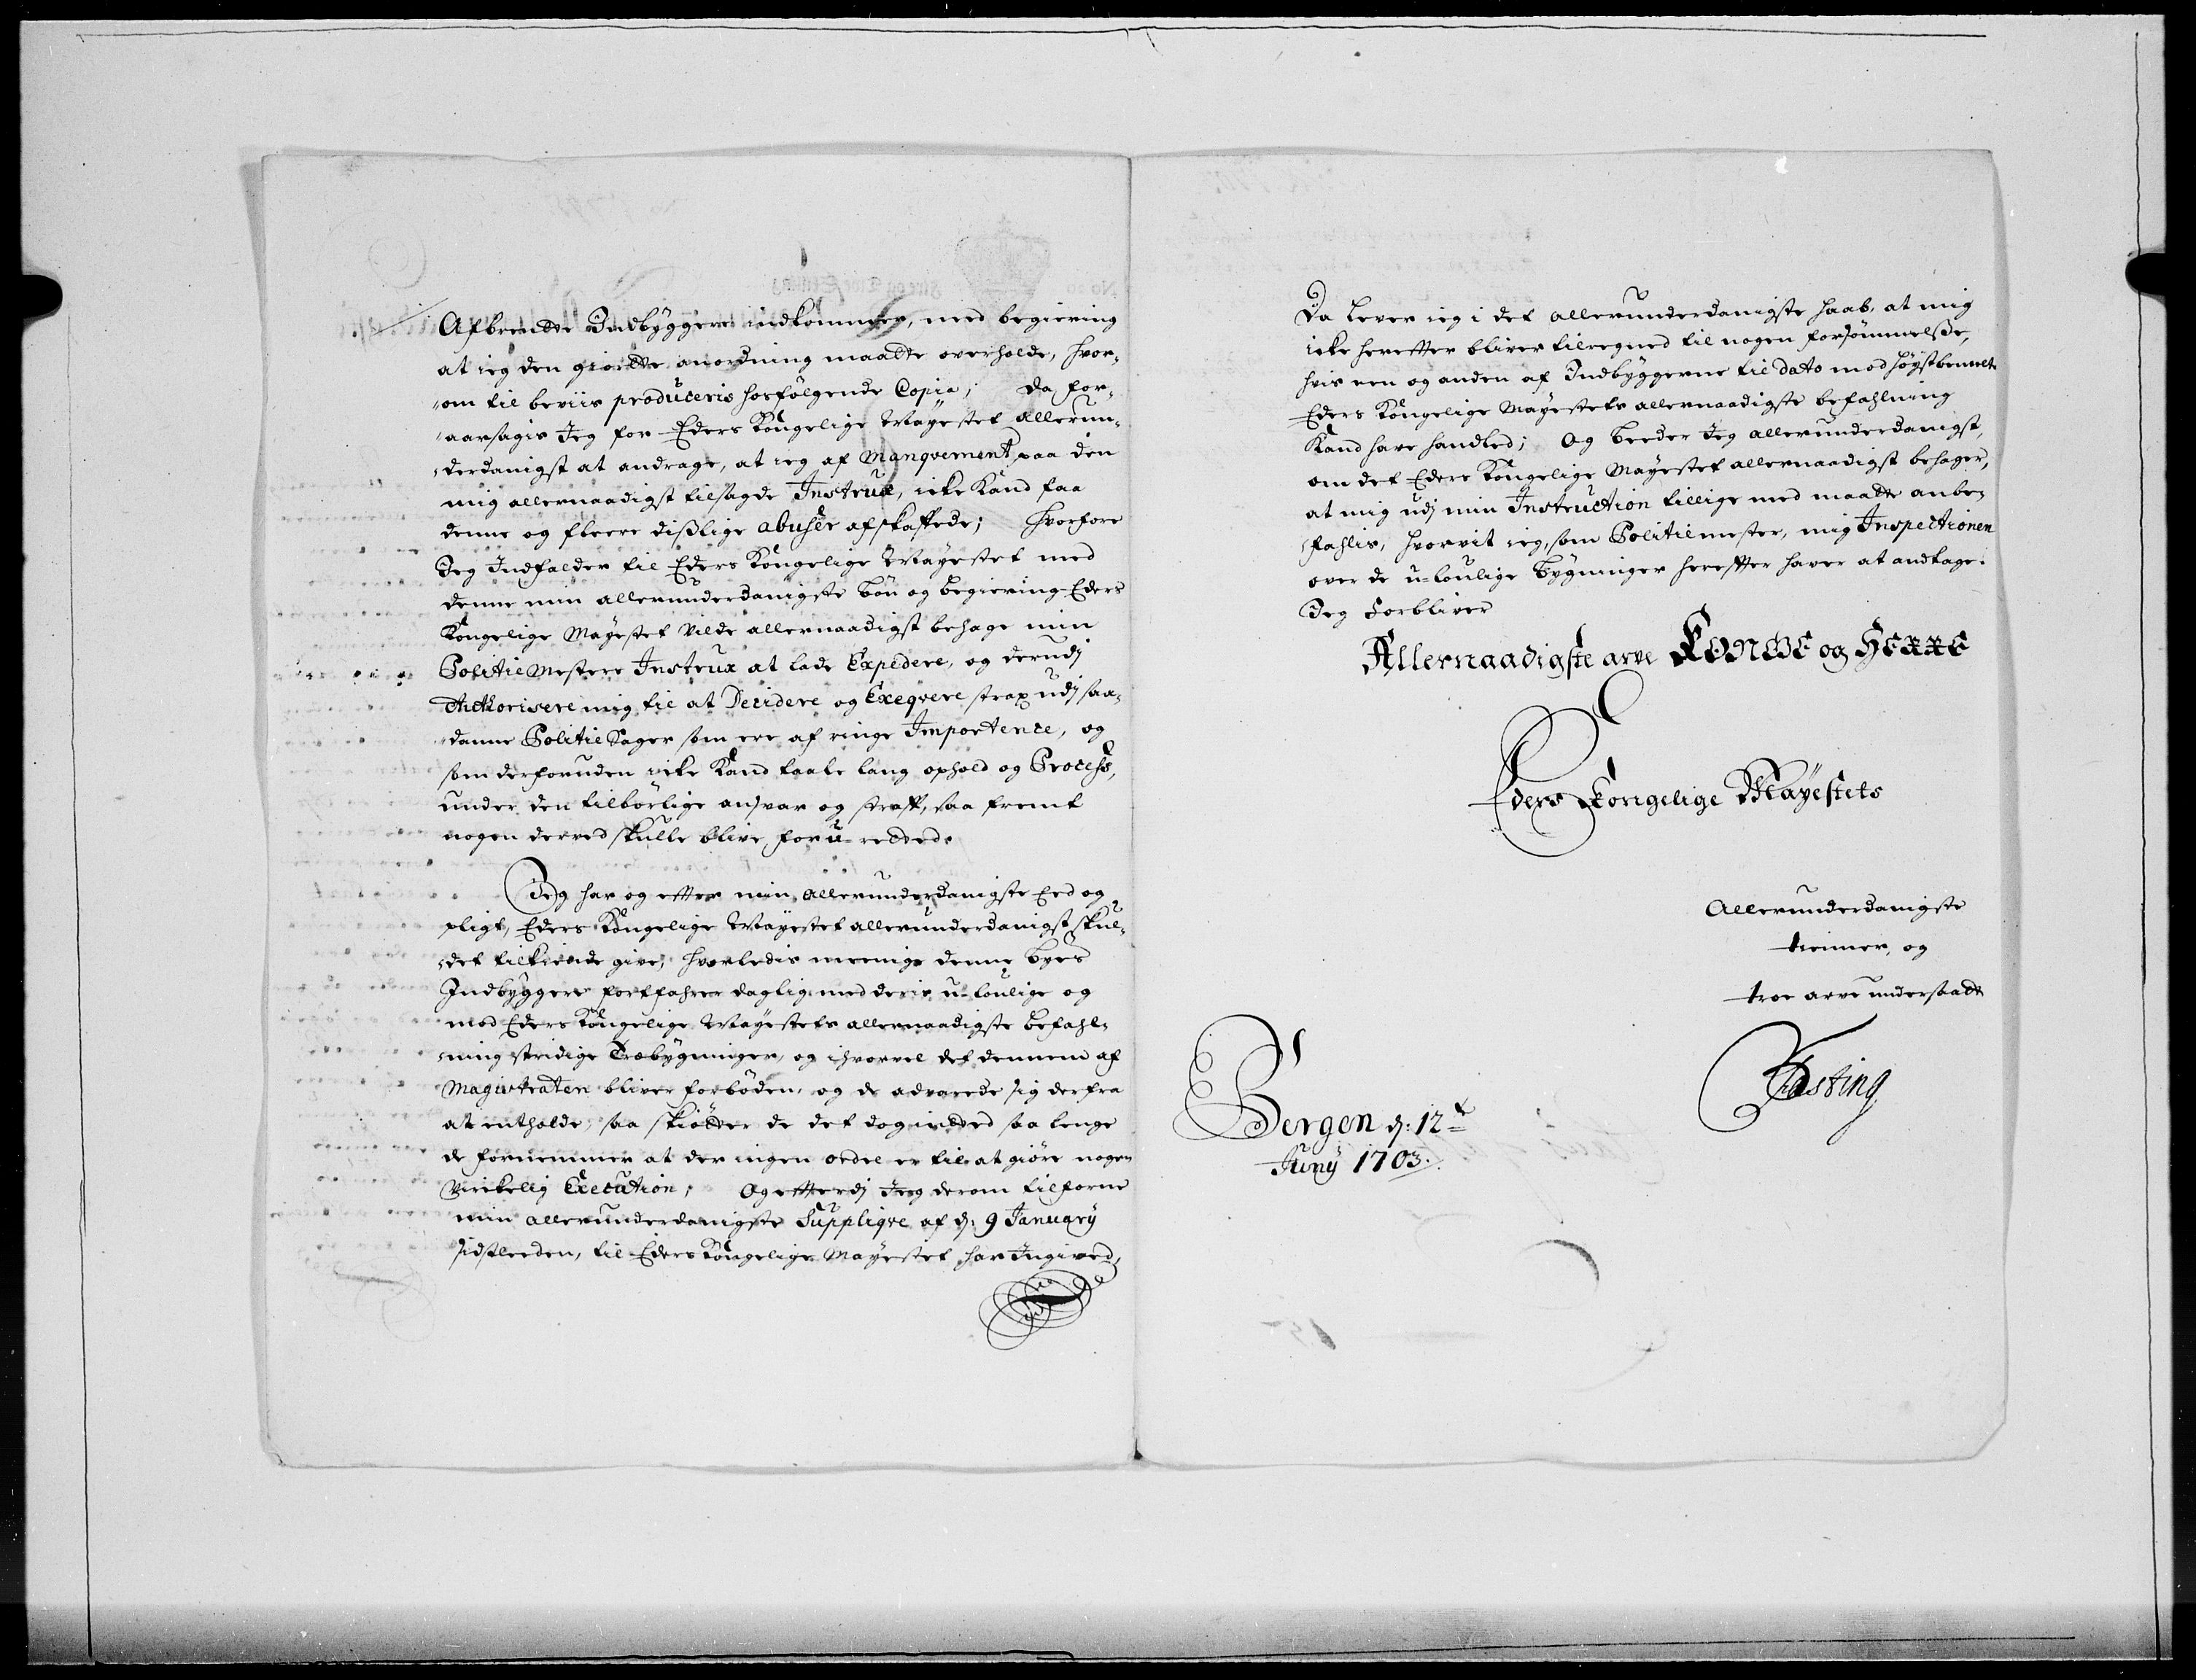 Afbrendte Indbyggere indkommer, med begiering
at ieg den giordte anordning maatte overholde, hvor-
om til beviis produceris hosfölgende Copia; da for-
aarsagis Jeg for Eders Kongelige Mayestet allerun-
derdanigst at andrage, at ieg af Manqvement paa den
mig allernaadigst tilsagde Instrux, icke Kand faa
denne og fleere dißlige abuser afskaffede; hvorfore
Jeg Indfalder til Eders Kongelige Mayestet med
denne min allerunderdanigste bön og begiering Eders
Kongelige Mayestet vilde allernaadigst behage min
Politie Mesters Instrux at lade Expedere, og derudj
Authorisere mig til at Decidere og Exeqvere strax udj saa-
danne Politie Sager som ere af ringe Importence, og
som derforuden icke Kand taale lang ophold og Process,
under den tilbörlige ansvar og straff, saa fremt
nogen derved skulle blive for u-retted.
Jeg har og efter min allerunderdanigste Eed og
pligt, Eders Kongelige Mayestet allerunderdanigst skul-
det tilkiende give, hvorledis meenige denne byes
Indbyggere fortfahrer daglig med deris u-loulige og
mod Eders Kongelige Mayestets allernaadigste befahl-
ning stridige Træbygninger, og ihvorvel det dennem af
Magistraten bliver forböden, og de advarede sig derfra
at entholde, saa skiötter de det dog intted saa lenge
de fornemmer at der ingen ordre er til at giöre nogen
Virckelig Execution; Og efterdj Jeg derom tilforne
min allerunderdanigste Suppliqve af d: 9 January
sidstleeden, til Eders Kongelige Mayestet har Ingived,
Da lever ieg i det allerunderdanigste haab, at mig
icke herefter bliver tilregned til nogen forsömmelße,
hvis een og anden af Indbyggerne til dato mod höystbemelte
Eders Kongelige Mayestets allernaadigste befahlning
Kand have handled; Og beeder Jeg allerunderdanigst,
om det Eders Kongelige Mayestet allernaadigst behager,
at mig udj min Instruction tillige med maatte anbe-
fahlis, hvorvit ieg, som Politiemester, mig Inspectionen
over de u-loulige bygninger herefter haver at andtage.
Jeg Forbliver
Allernaadigste arve KONGE og HERRE
Eders Kongelige Mayestets
Allerunderdanigste
tienner, og
troe arve undersaatt
Fasting
Bergen d: 12t
Juny 1703.